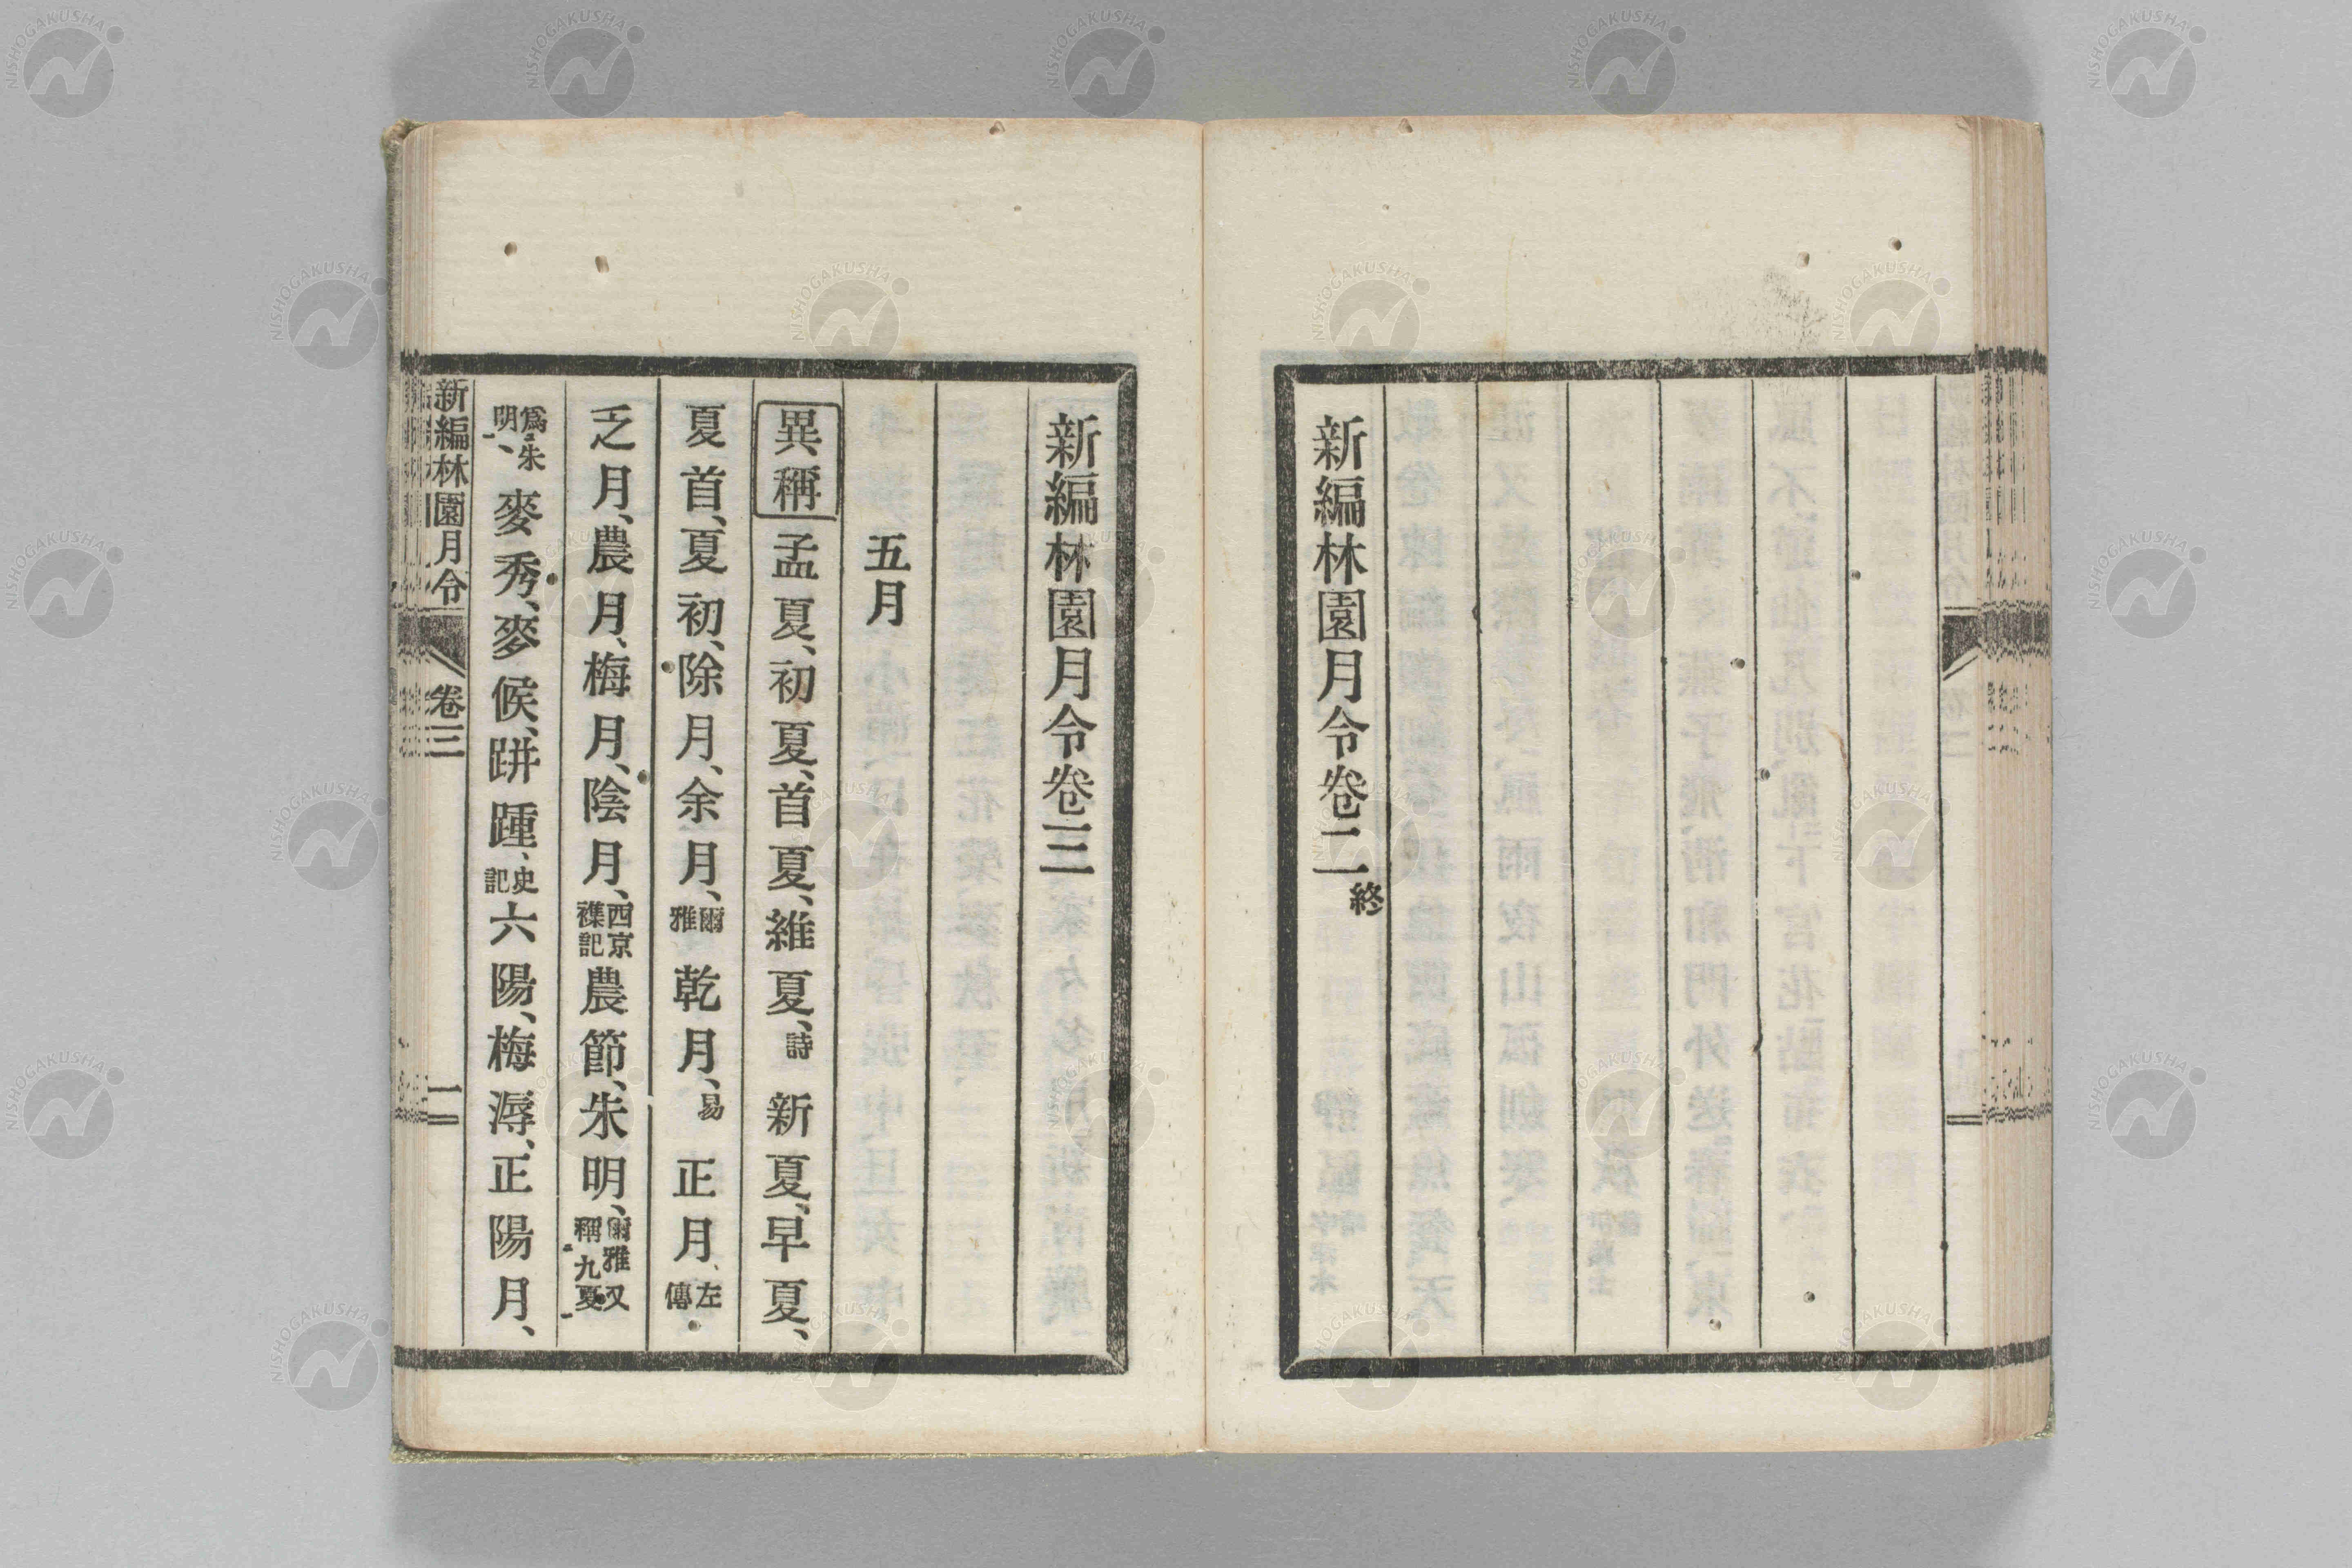 新編林園月令卷二終
新編林園月令卷三
五月
異稱 孟夏、初夏、首夏、維夏、詩 新夏、早夏、
夏首、夏初、除月、余月、爾雅 乾月、易 正月、左傳
乏月、農月、梅月、陰月、西京襍記 農節、朱明、爾雅又稱九夏
爲朱明、 麥秀、麥候、跰踵、史記 六陽、梅溽、正陽月、
新編林園月令 卷三 一
NISHOGAKUSHA